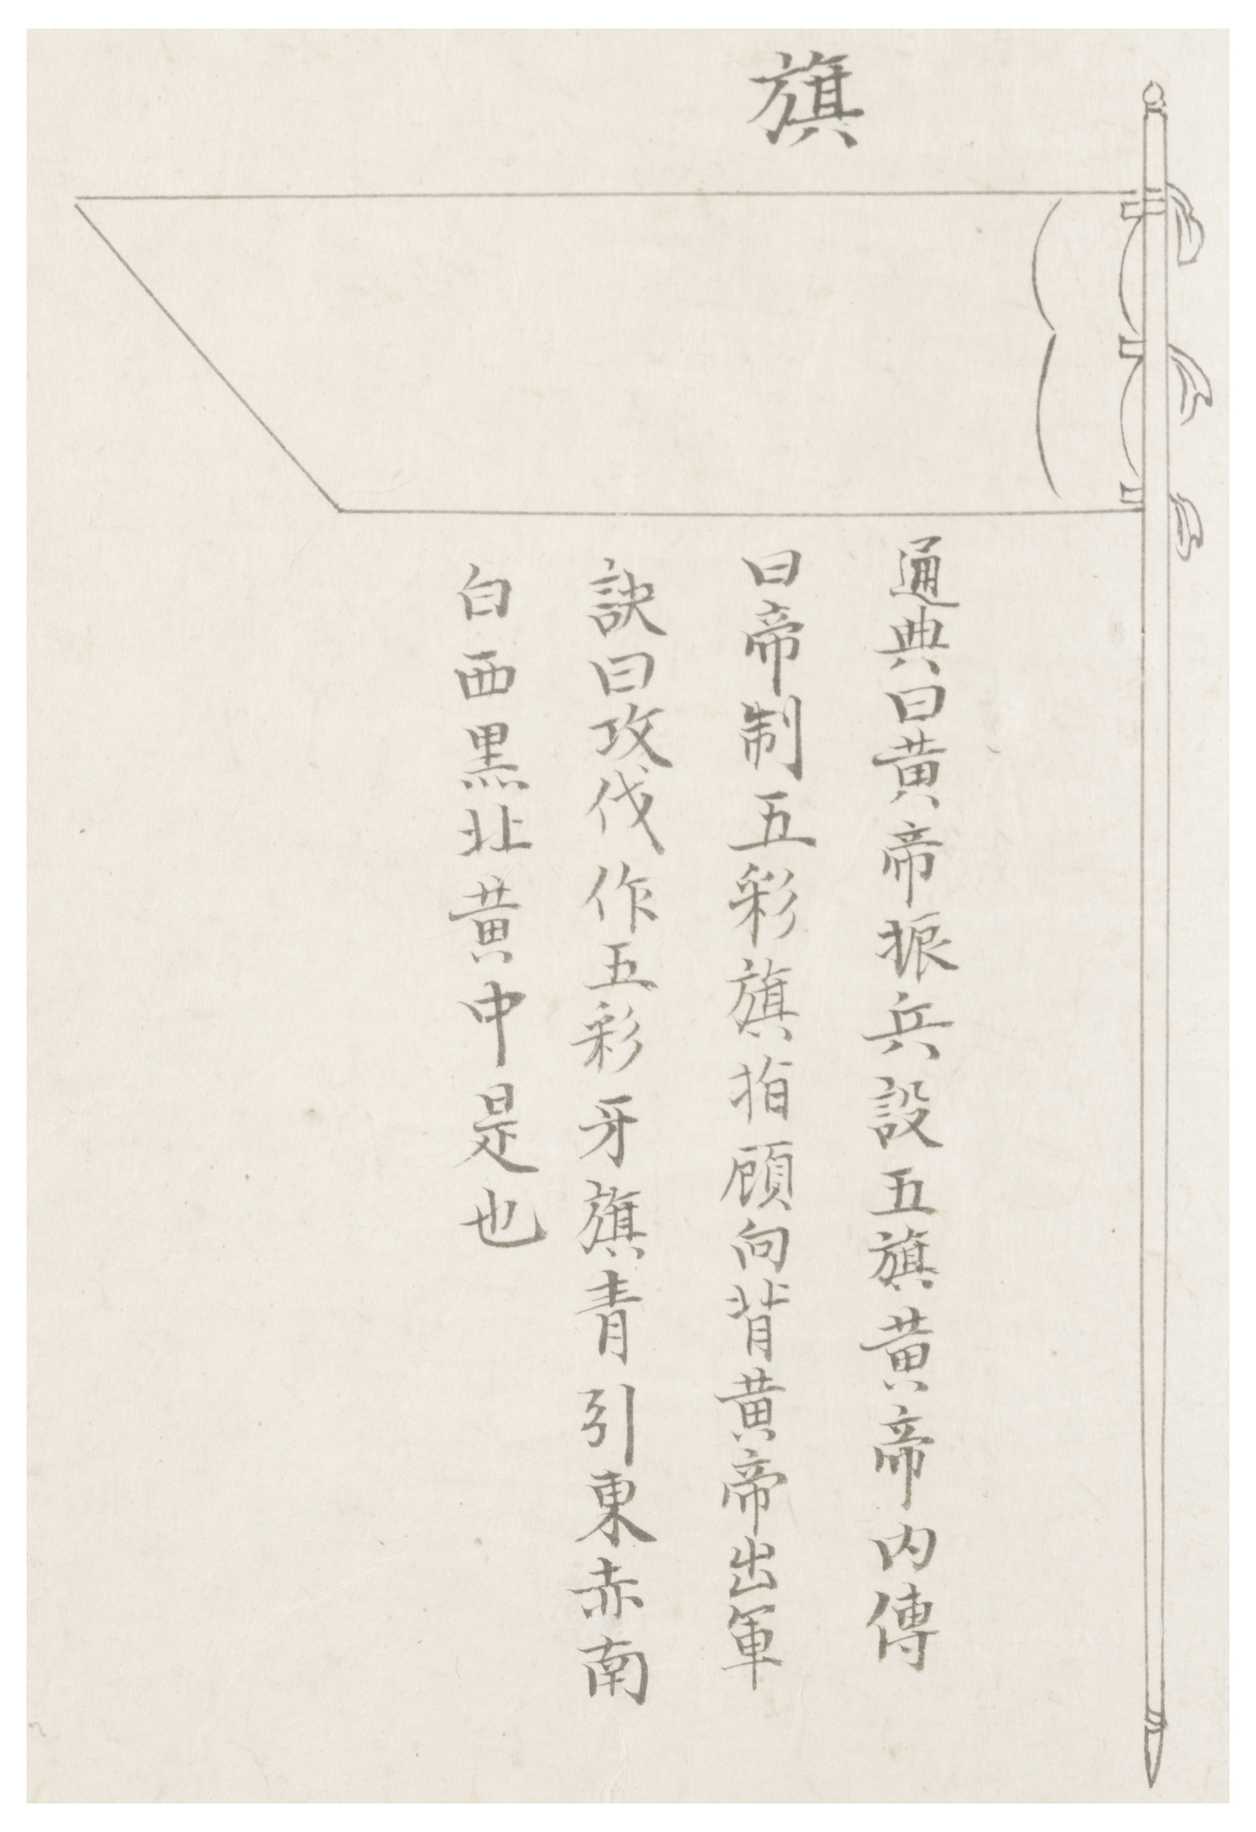 旗
通典曰黄帝振兵設五旗黄帝内傳
曰帝制五彩旗指顧向背黄帝出軍
訣曰攻伐作五彩牙旗青引東赤南
白西黒北黄中是也